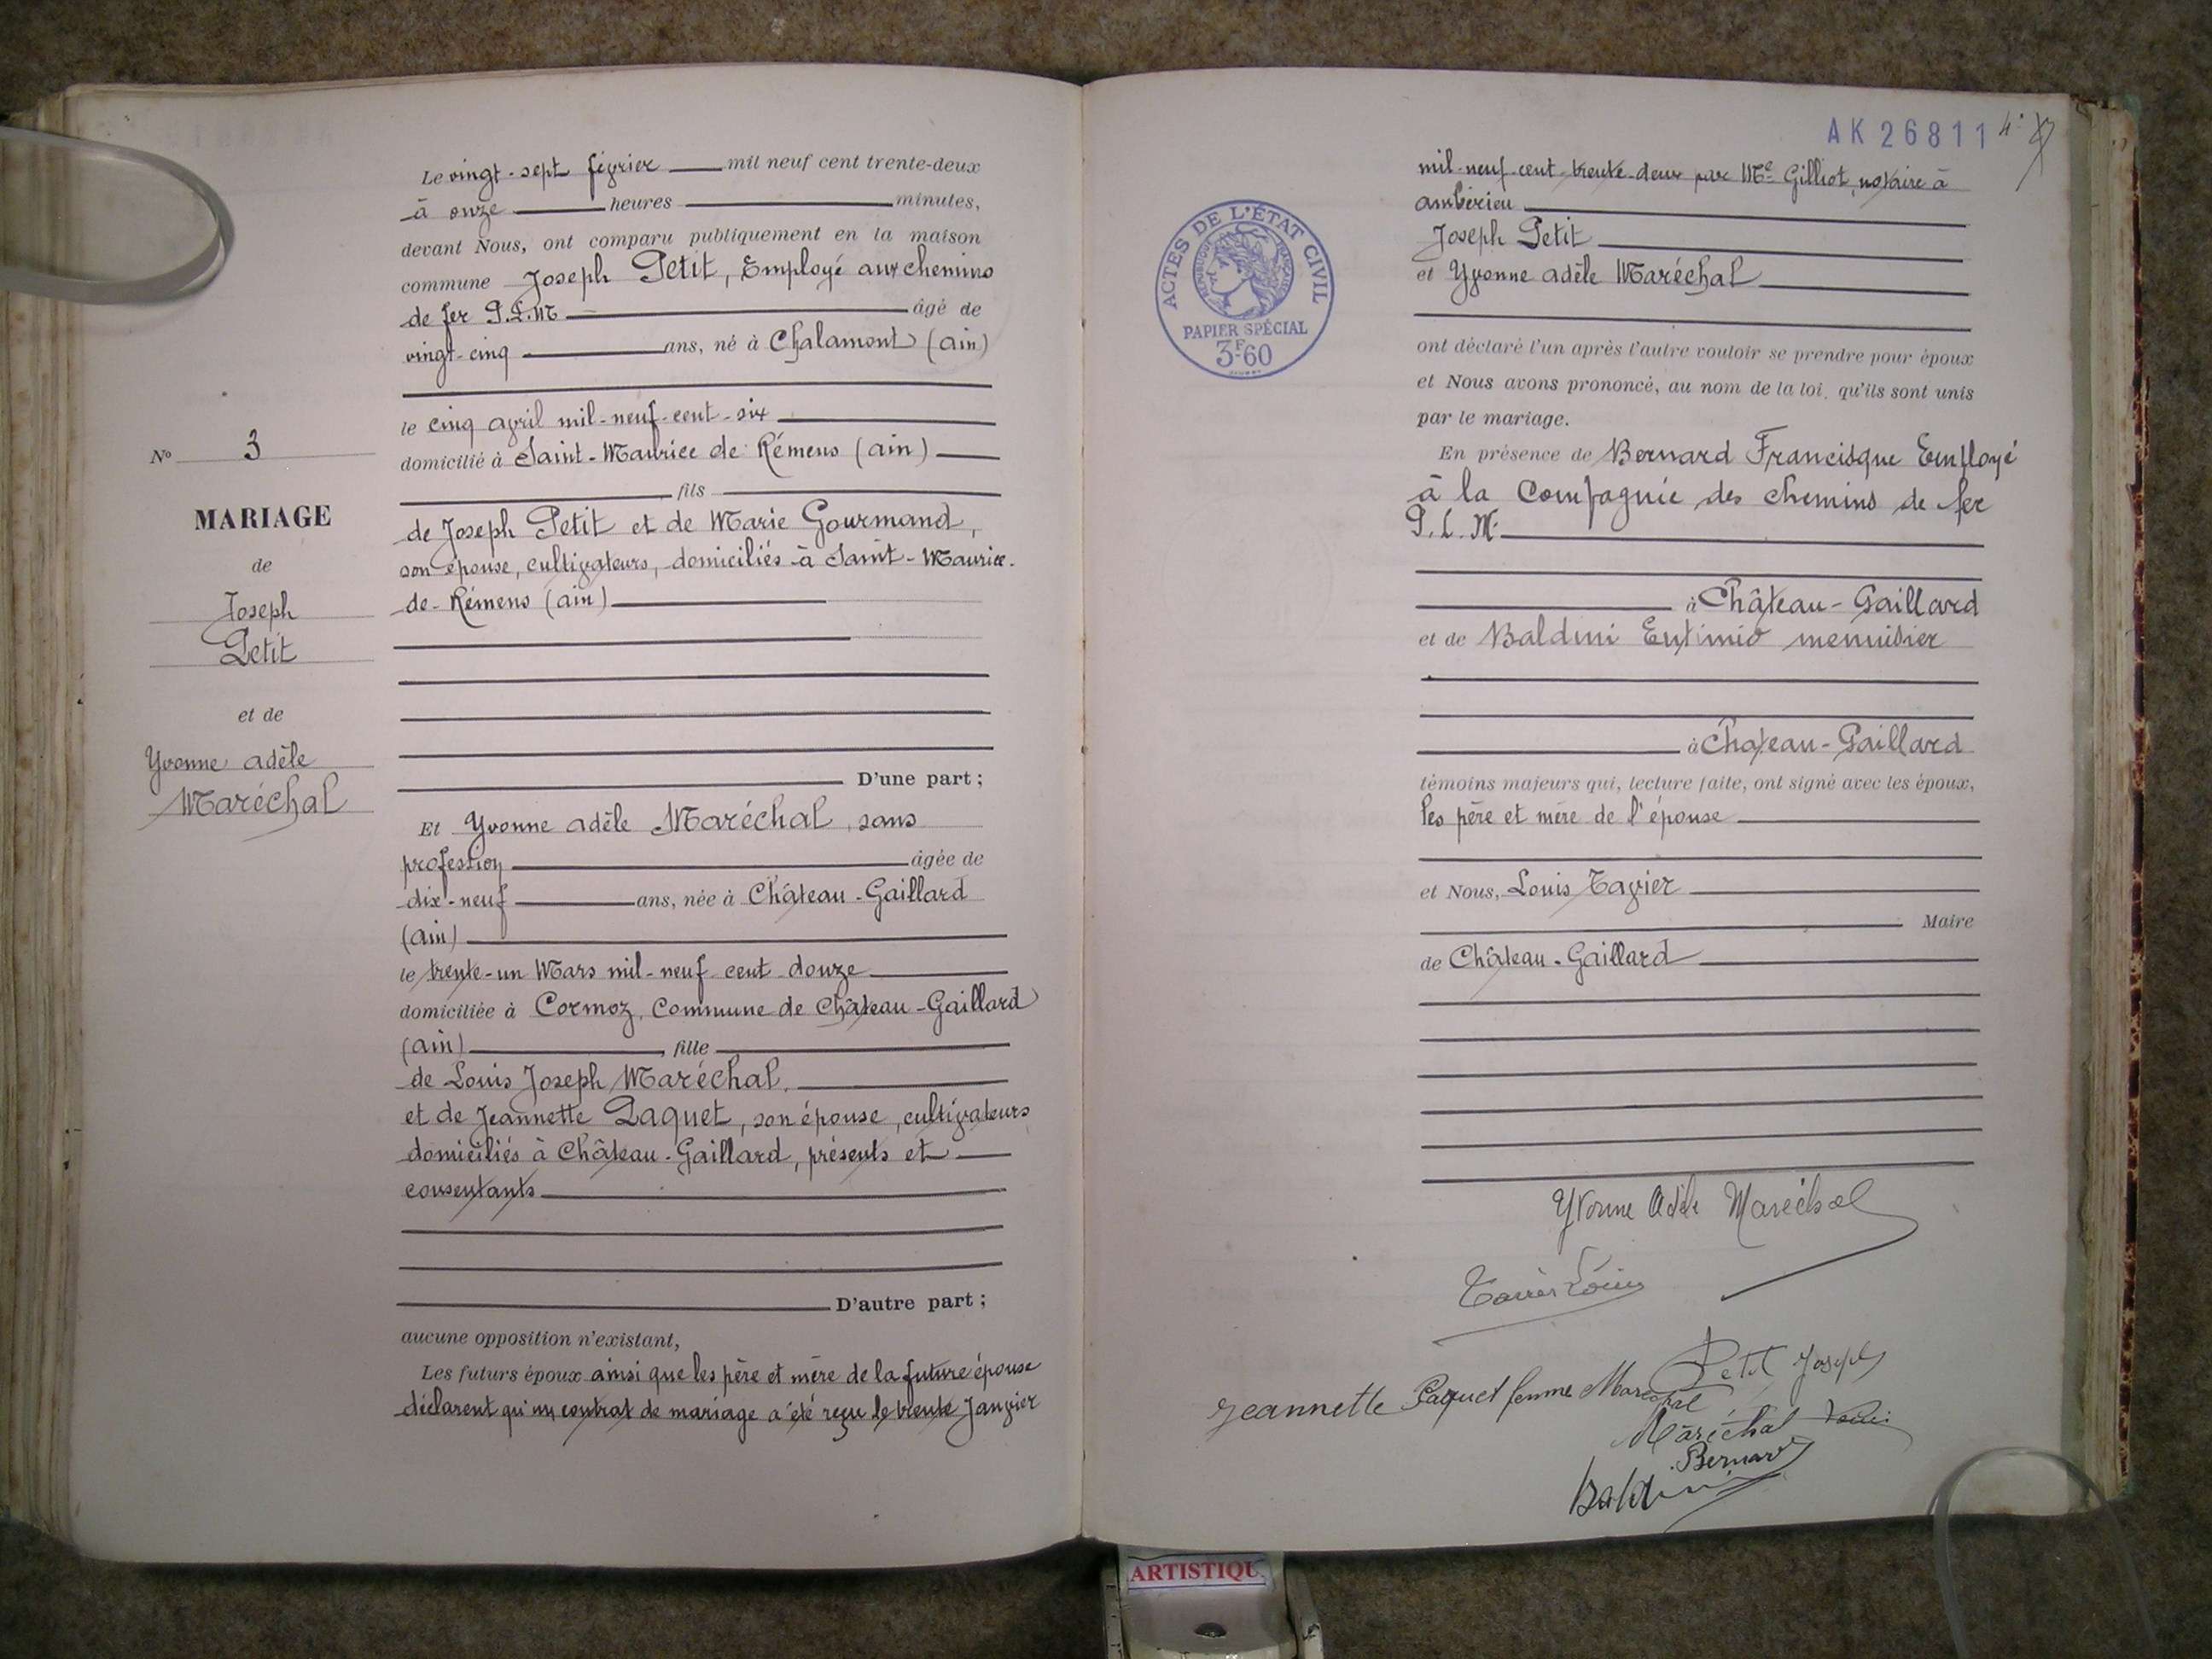 N° 3
MARIAGE
de
Joseph
Petit
et de
Yvonne adèle
Maréchal
Le vingt-sept février mil neuf cent trente-deux
à onze heures minutes,
devant Nous, ont comparu publiquement en la maison
commune Joseph Petit, Employé aux chemins
de fer P.L.M âgé de
vingt-cinq ans, né à Chalamont (ain)
le cinq avril mil-neuf-cent-six
domicilié à Saint-Maurice de Rémens (ain)
fils
de Joseph Petit et de Marie Gourmand,
son épouse, cultivateurs, domiciliés à Saint-Maurice-
de-Rémens (ain)
D'une part ;
Et Yvonne adèle Maréchal, sans
profession âgée de
dix-neuf ans, née à Château-Gaillard
(ain)
le trente-un Mars mil-neuf cent douze
domiciliée à Cormoz, Commune de Château-Gaillard
(ain), fille
de Louis Joseph Maréchal,
et de Jeannette Paquet, son épouse, cultivateurs
domiciliés à Château-Gaillard, présents et
consentants
D'autre part ;
aucune opposition n'existant,
Les futurs époux ainsi que les père et mère de la future épouse
déclarent qu'un contrat de mariage a été reçu le trente Janvier
AK 26811
mil-neuf-cent-trente-deux par Me Gilliot, notaire à
ambérieu
Joseph Petit
et Yvonne adèle Maréchal
ACTES DE L'ÉTAT CIVIL
RÉPUBLIQUE FRANÇAISE
PAPIER SPÉCIAL
3F60
ont déclaré l'un après l'autre vouloir se prendre pour époux
et Nous avons prononcé, au nom de la loi, qu'ils sont unis
par le mariage.
En présence de Bernard Francisque Employé
à la Compagnie des chemins de fer
P.L.M.
à Château-Gaillard
et de Baldini Eutimio menuisier
à Chateau-Gaillard
témoins majeurs qui, lecture faite, ont signé avec les époux,
les père et mère de l'épouse
et Nous, Louis Tavier
Maire
de Château-Gaillard
Yvonne Adèle Maréchal
Tavier Louis
Petit Joseph
Jeannette Paquet femme Maréchal
Maréchal Louis
Bernard
Baldini
ARTISTIQU